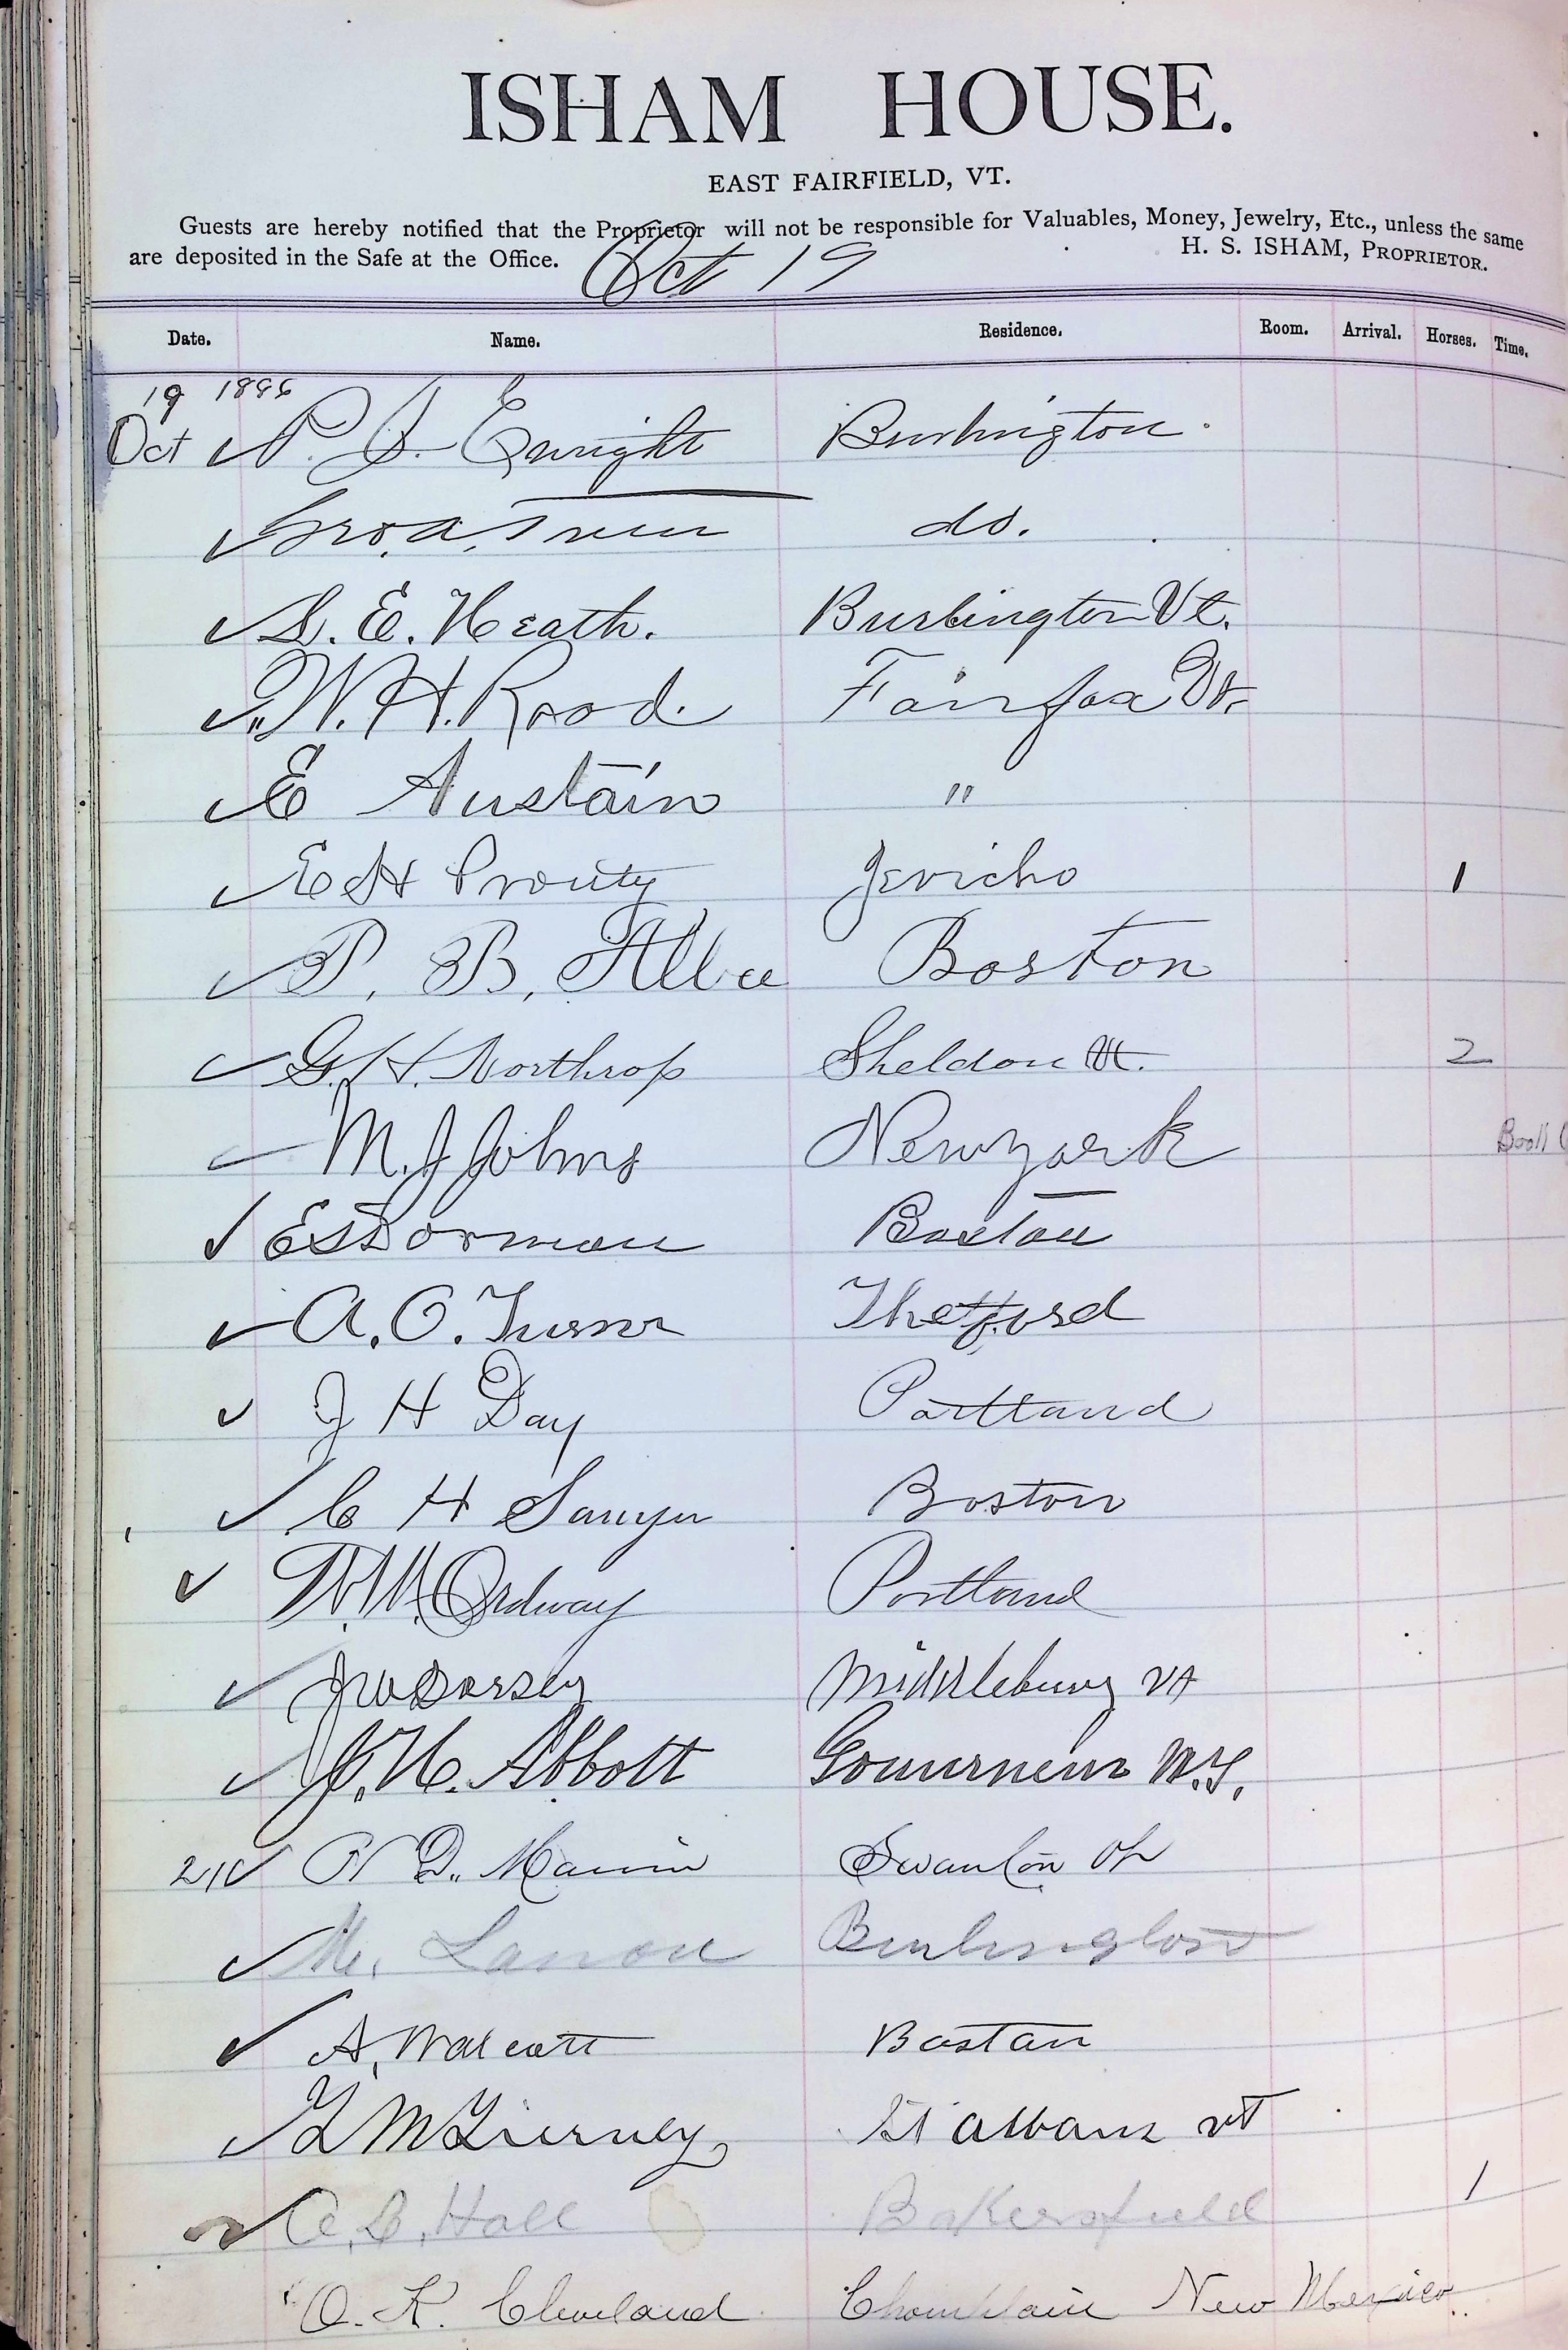 ISHAM HOUSE.
EAST FAIRFIELD, VT.
Guests are hereby notified that the Proprietor will not be responsible for Valuables, Money, Jewelry, Etc., unless the same
are deposited in the Safe at the Office. H. S. ISHAM, PROPRIETOR.
Oct 19
Date. Name. Residence. Room. Arrival. Horses. Time.
19 1896
Oct P. S. Enright Burlington.
Geo. A. do.
S. E. Heath. Burlington Vt.
W. H. Rood. Fairfax Vt.
E Austain "
E H Prouty Jericho 1
P. B. Albee Boston
G. H. Northrop Sheldon Vt. 2
M. J Johns Newyork Book
E S Dorman Boston
A. O. Turner Thetford
J H Day Portland
C H Sawyer Boston
W. W. Ordway Portland
J W Dorsey Middlebury Vt
J. H. Abbott Gouverneur N.Y.
21 D. Marvin Swanton Vt
M. Burlington
A. Walcott Boston
T M Tierney St Albans VT
C. B. Hall Bakersfield 1
O. K. Cleveland New Mexico